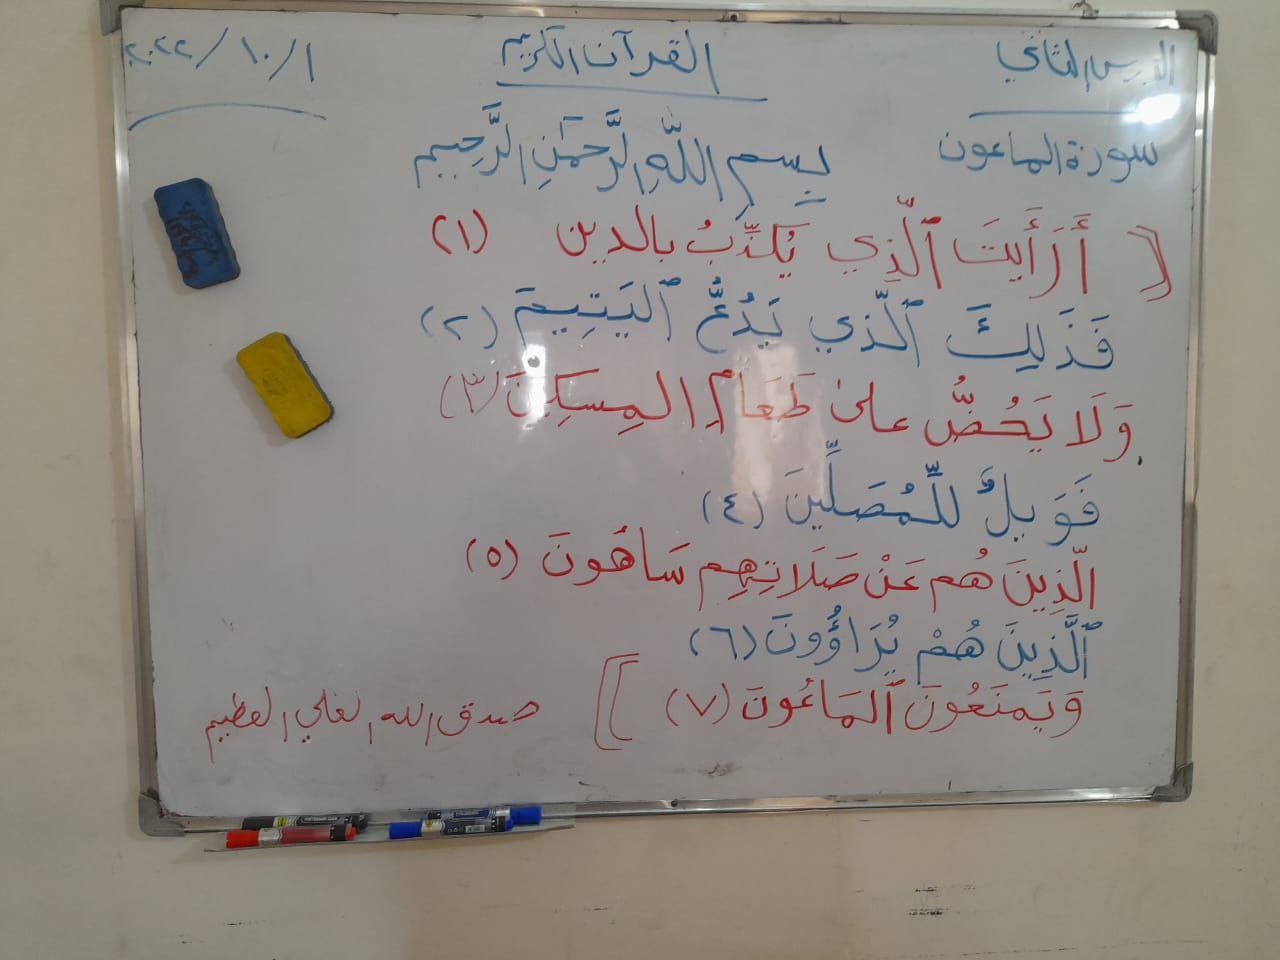 الدرس الثاني
القرآن الكريم
٢٠٢٢/١٠/١
سورة الماعون
بِسمِ اللَّهِ الرَّحمَٰنِ الرَّحِيمِ
أَرَأَيتَ ٱلَّذِي يُكَذِّبُ بالدين (١)
فَذَٰلِكَ ٱلَّذي يَدُعُّ ٱليَتِيمَ (٢)
وَلَا يَحُضُّ على طَعَامِ المِسكِينَ (٣)
فَوَيلٌ لِّلمُصَلِّينَ (٤)
الَّذِينَ هُم عَنْ صَلَاتِهِم سَاهُونَ (٥)
ٱلَّذِينَ هُمْ يُرَاؤُونَ (٦)
وَيَمنَعُونَ ٱلمَاعُونَ (٧)
صدق الله العلي العظيم